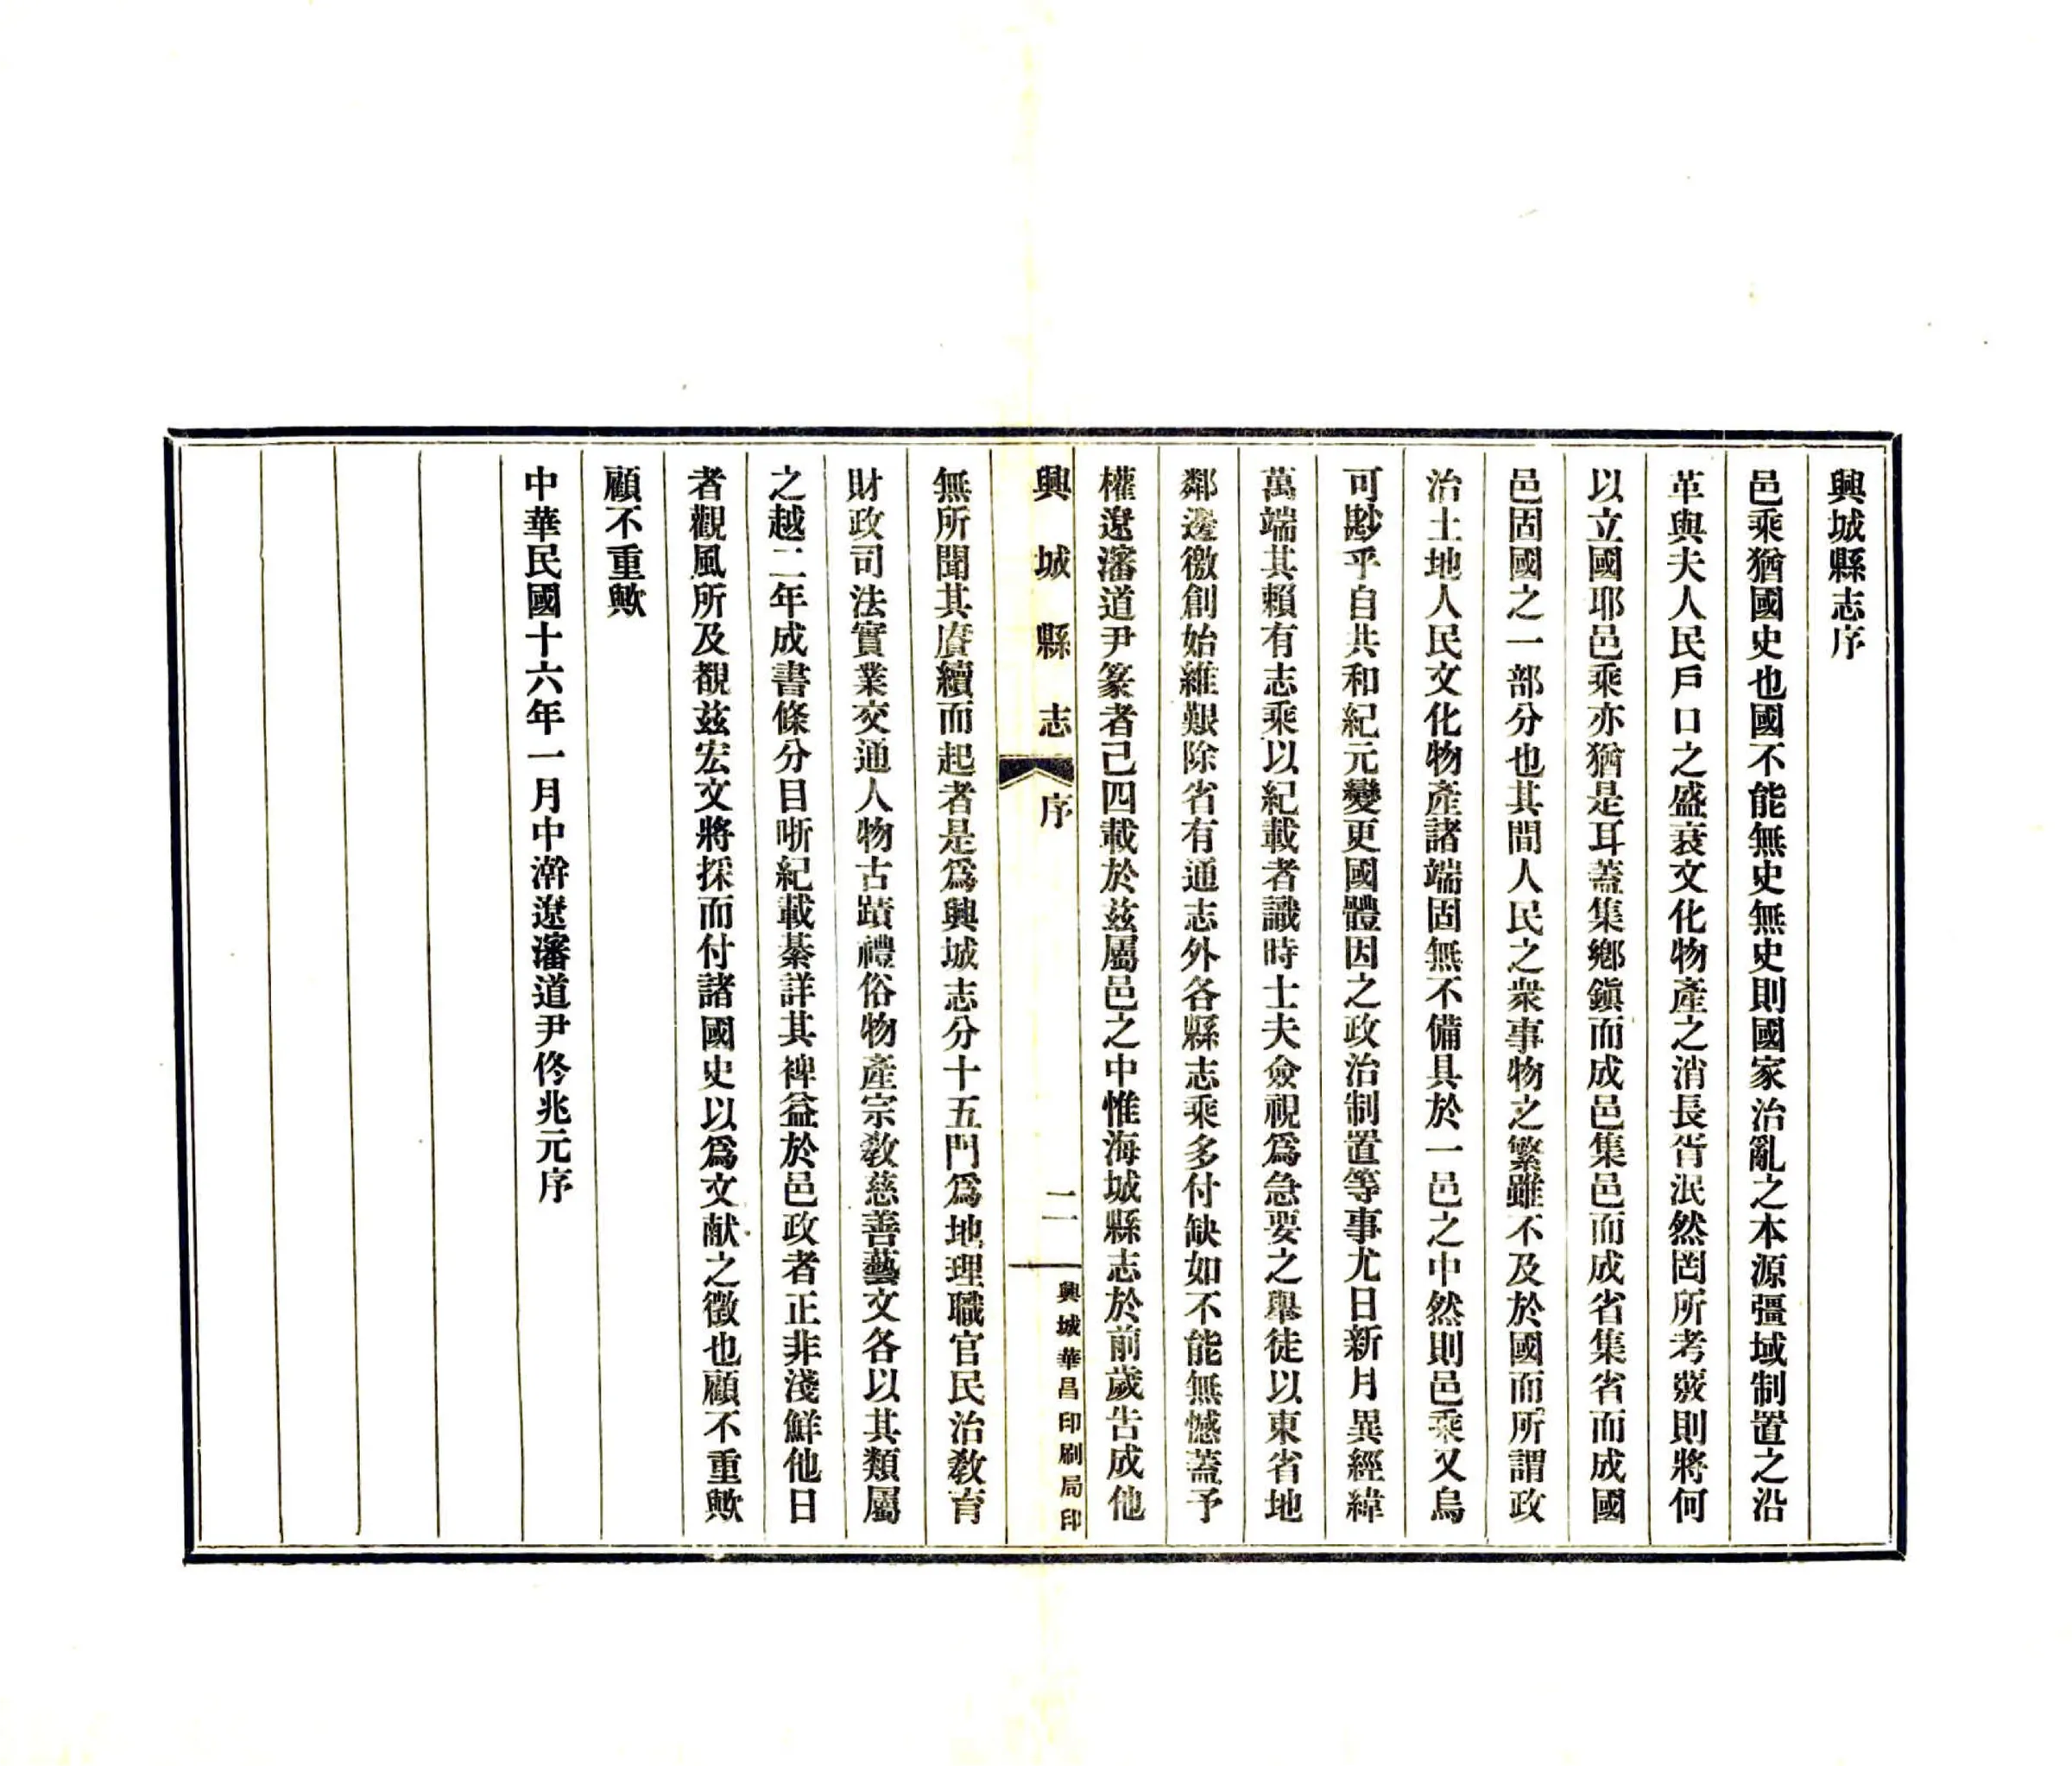 興城縣志序
邑乘猶國史也國不能無史無史則國家治亂之本源彊域制置之沿
革與夫人民戶口之盛衰文化物產之消長胥泯然罔所考覈則將何
以立國耶邑乘亦猶是耳蓋集鄉鎭而成邑集邑而成省集省而成國
邑固國之一部分也其間人民之衆事物之繁雖不及於國而所謂政
治土地人民文化物產諸端固無不備具於一邑之中然則邑乘又烏
可尠乎自共和紀元變更國體因之政治制置等事尤日新月異經緯
萬端其賴有志乘以紀載者識時士夫僉視爲急要之舉徒以東省地
鄰邊徼創始維艱除省有通志外各縣志乘多付缺如不能無憾蓋予
權遼瀋道尹篆者己四載於茲屬邑之中惟海城縣志於前歲告成他
興城縣志 序 二 興城華昌印刷局印
無所聞其賡續而起者是爲興城志分十五門爲地理職官民治敎育
財政司法實業交通人物古蹟禮俗物產宗敎慈善藝文各以其類屬
之越二年成書條分目晣紀載綦詳其裨益於邑政者正非淺鮮他日
者觀風所及覩茲宏文將採而付諸國史以爲文献之徵也顧不重歟
顧不重歟
中華民國十六年一月中澣遼瀋道尹佟兆元序